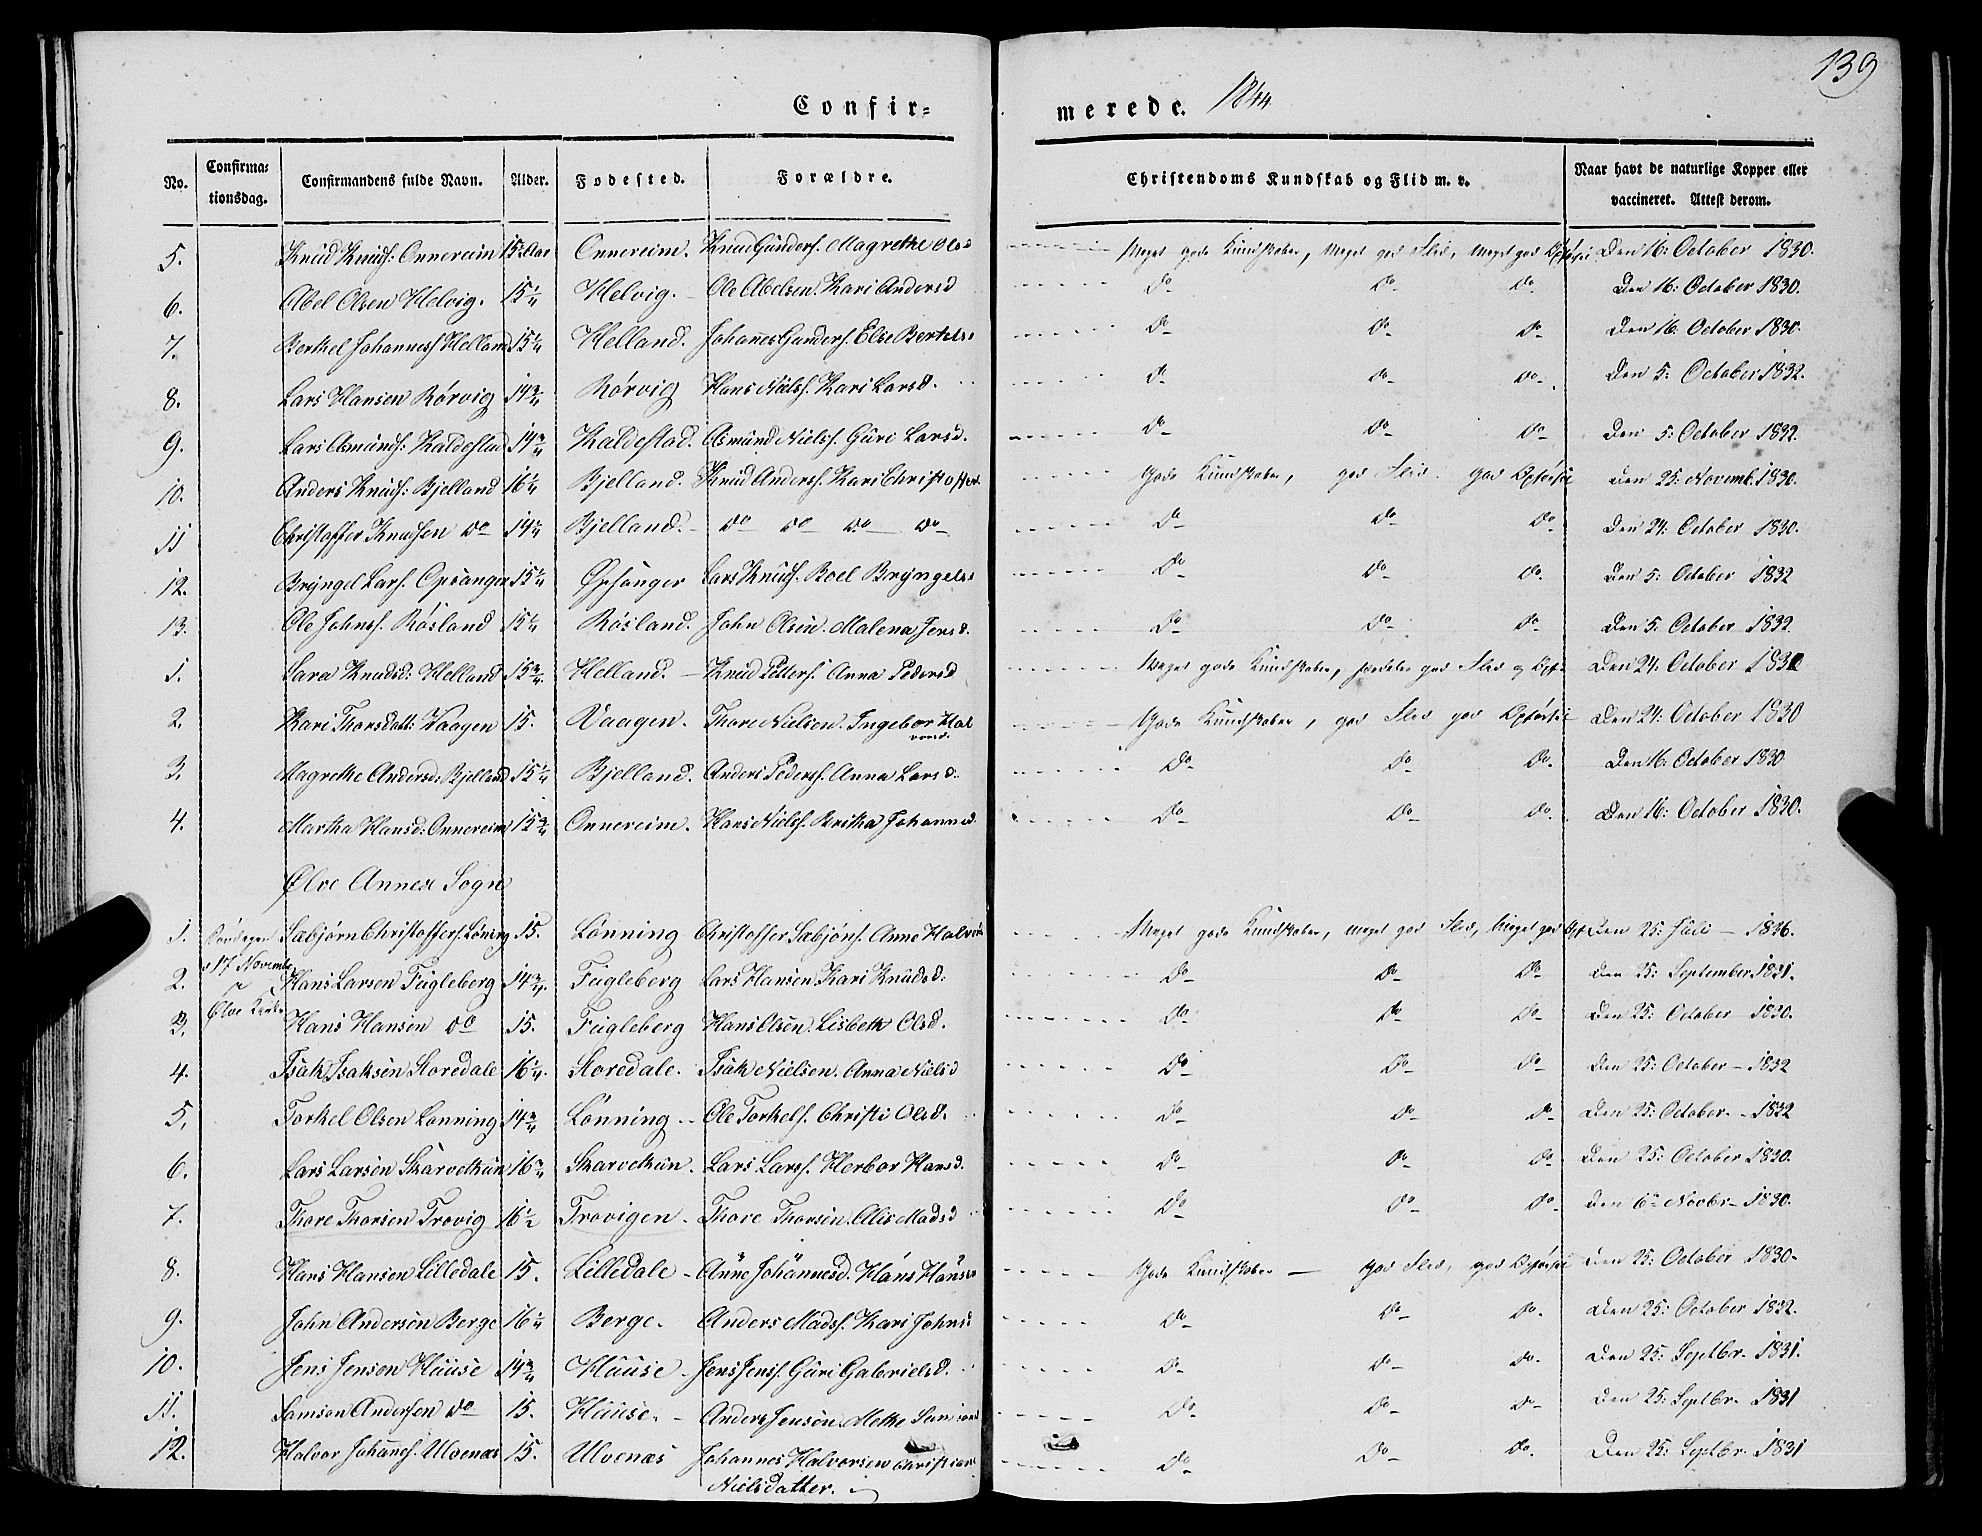 139
Confir= merede. 1844
No. Confirma= tionsdag. Confirmandens fulde Navn. Alder. Fødested. Forældre. Christendoms Kundskab og Flid m. v. Naar havt de naturlige Kopper eller vaccineret. Attest derom.
5. Knud Knuds: Onnereim 15 Aar Onnereim. Knud Gunders. Magrethe Olsd Meget gode Kundskaber, meget god Flid, meget god Den 16: October 1830.
6. Abel Olsen Helvig. 15¼ Helvig. Ole Abelsen. Kari Andersd do do do Den 16: October 1830.
7. Berthel Johanness Helland 15¼ Helland. Johannes Gunders. Else Bertels: do do do Den 16 October 1830.
8. Lars Hansen Rørvig 14¾ Rørvig Hans Niels. Kari Larsd. do do do Den 5: October 1832.
9. Lars Asmunds: Kaldestad 14¾ Kaldestad. Asmund Niels. Guri Larsd. do do do Den 5: October 1832.
10. Anders Knuds: Bjelland 16¼ Bjelland. Knud Anders. Kari Christoffers Gode Kundskaber, god Flid. god Opførsel Den 25: Novemb. 1830.
11 Christoffer Knudsen do 14¾ Bjelland. do do do do do do do Den 24: October 1830.
12. Bryngel Lars. Opsanger 15¼ Opsanger Lars Knuds. Boel Bryngels: do do do. Den 5: October 1832
13. Ole Johns. Røsland 15¼ Røsland. John Olsen. Malena Jensd. do do do Den 5: October 1832.
1. Sara Knudsd: Helland 15¾ Helland. Knud Petters. Anna Pedersd Meget gode Kundskaber, god Flid og Den 24: October 1830
2. Kari Thorsdatt: Vaagen 15. Vaagen. Thore Nielsen. Ingebor Hal
vorsd. Gode Kundskaber, god Flid god Opførsel Den 24: October 1830
3. Magrethe Andersd: Bjelland 15¼ Bjelland. Anders Peders. Anna Larsd. do do do. Den 16. October 1830
4. Martha Hansd: Onnereim 15¾ Onnereim. Hans Niels. Britha Johannsd. do do do. Den 16: October 1830.
Ølve Annex Sogn
1. Søndagen Sæbjørn Christoffers. Løning 15. Lønning Christoffer Sæbjøns. Anne Halvors Meget gode Kundskaber, meget god Flid, Meget god Den 25: Juli – 1836.
2. d 17 Novembr Hans Larsen Fugleberg 14¾. Fugleberg Lars Hansen. Kari Knudsd: do do do Den 25: September 1831.
3. Ølve Kirke Hans Hansen do 15. Fugleberg Hans Olsen. Lisbeth Olsd. do do do Den 25: October 1830.
4. Isak Isaksen Storedale 16¼. Storedale. Isak Nielsen. Anna Nielsd do do do Den 25: October – 1832
5. Torkel Olsen Lønning 14¾ Lønning Ole Torkels. Christi Olsd. do do do Den 25: October – 1832
6. Lars Larsen Skarvetun 16¾ Skarvetun. Lars Lars. Herbor Hansd. do do do Den 25: October 1830.
7. Thore Thorsen Trovig 16½ Trovigen Thore Thorsen. Alis Madsd do do do Den 6te Novbr – 1830.
8. Hans Hansen Lilledale 15. Lilledale Anne Johannesd. Hans Hans Gode Kundskaber god Flid, god Opførsel Den 25: October 1830.
9. John Andersen Berge 16¼ Berge. Anders Mads. Kari Johnsd do do do. Den 25: October 1832.
10. Jens Jensen Huuse 14¾ Huuse Jens Jens. Guri Gabrielsd. do do do. Den 25: Septbr. 1831.
11. Samson Andersen do 15. Huuse. Anders Jensen. Methe do do do Den 25: Septbr. 1831
12. Halvor Johannes. Ulvenæs 15. Ulvenæs Johannes Halvorsen Christiane
Nielsdatter. do do do. Den 25: Septbr. 1831